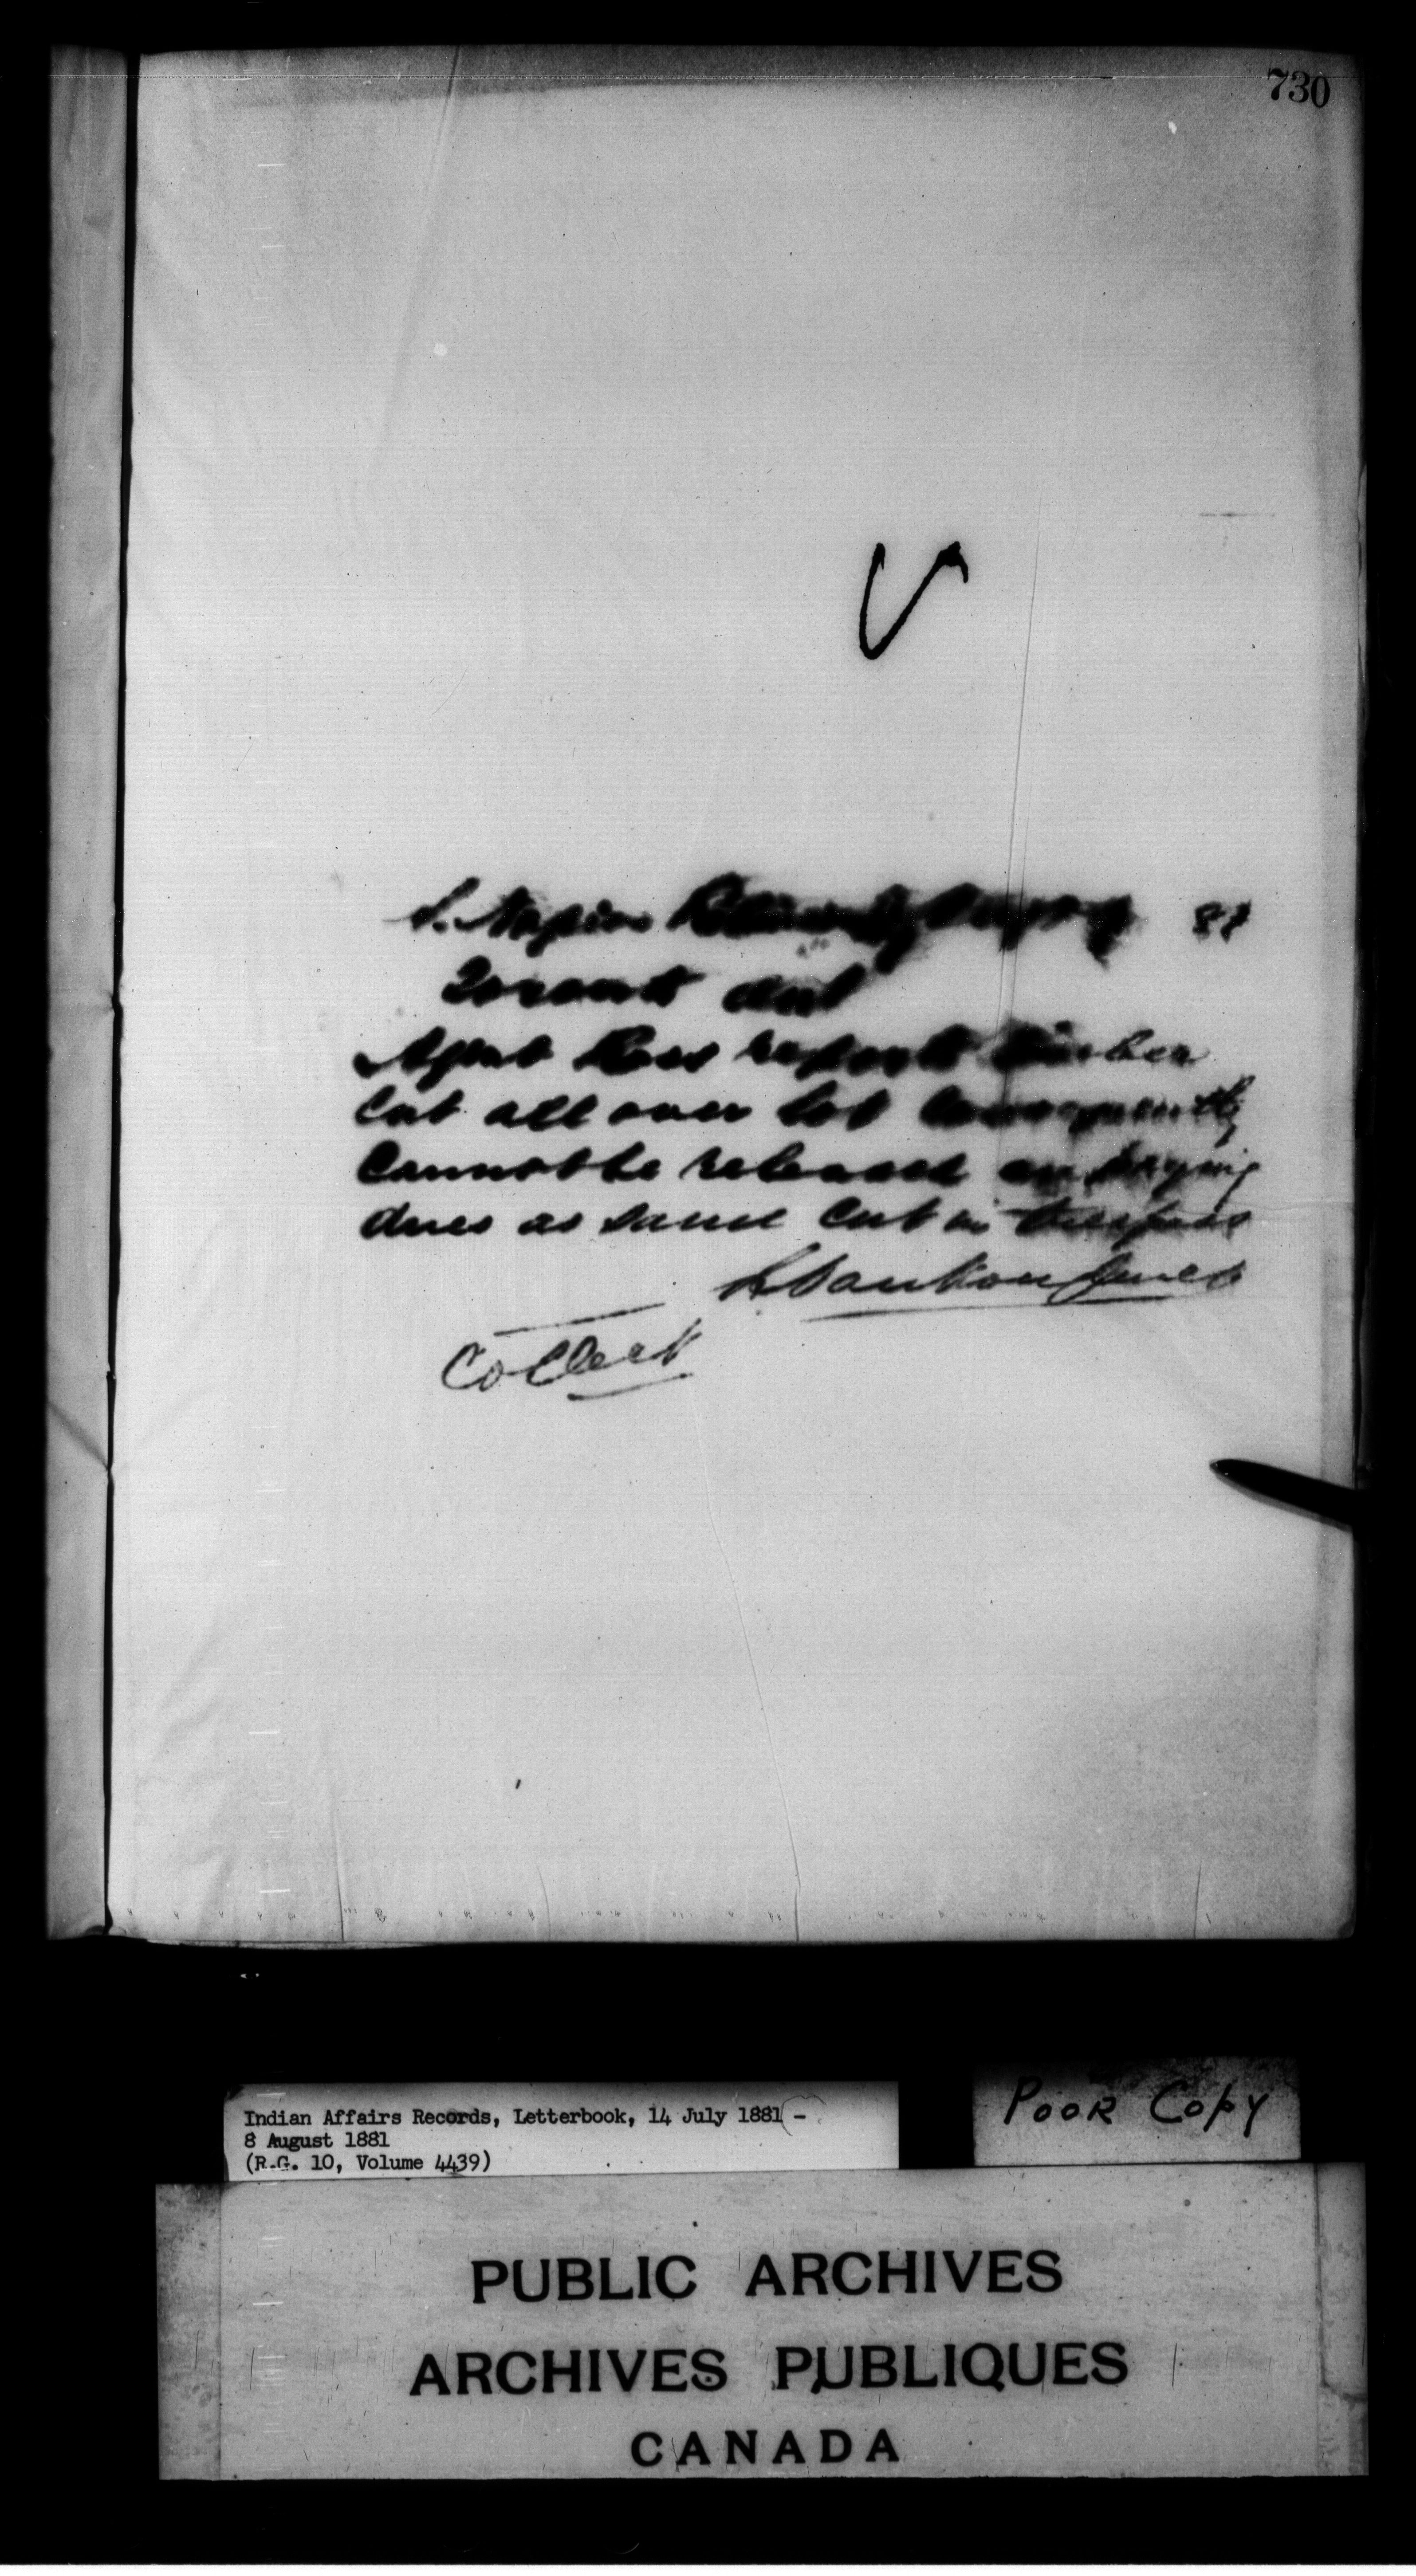 730
S. Napier 88
Toronto Ont
Agent Ross reports timber
Cut all over lot Consequently
Cannot be released on paying
dues as same Cut in trespass
R Sinclair
Collect
Indian Affairs Records, Letterbook, 14 July 1881 -
8 August 1881
(R.G. 10, Volume 4439)
Poor Copy
PUBLIC ARCHIVES
ARCHIVES PUBLIQUES
CANADA